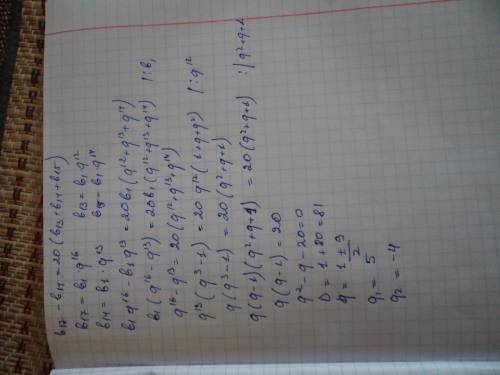 b17 - b14 = 20 (b13 + b14 + b15)
b17 = b1 · q^16   b13 = b1 · q^12
b14 = b1 · q^13   b15 = b1 · q^14
b1 q^16 - b1 q^13 = 20 b1 (q^12 + q^13 + q^14)
b1 (q^16 - q^13) = 20 b1 (q^12 + q^13 + q^14)   | : b1
q^16 - q^13 = 20 (q^12 + q^13 + q^14)
q^13 (q^3 - 1) = 20 q^12 (1 + q + q^2)   | : q^12
q (q^3 - 1) = 20 (q^2 + q + 1)
q (q - 1) (q^2 + q + 1) = 20 (q^2 + q + 1)   : | q^2 + q + 1
q (q - 1) = 20
q^2 - q - 20 = 0
D = 1 + 80 = 81
q = (1 ± 9)/2
q1 = 5
q2 = -4